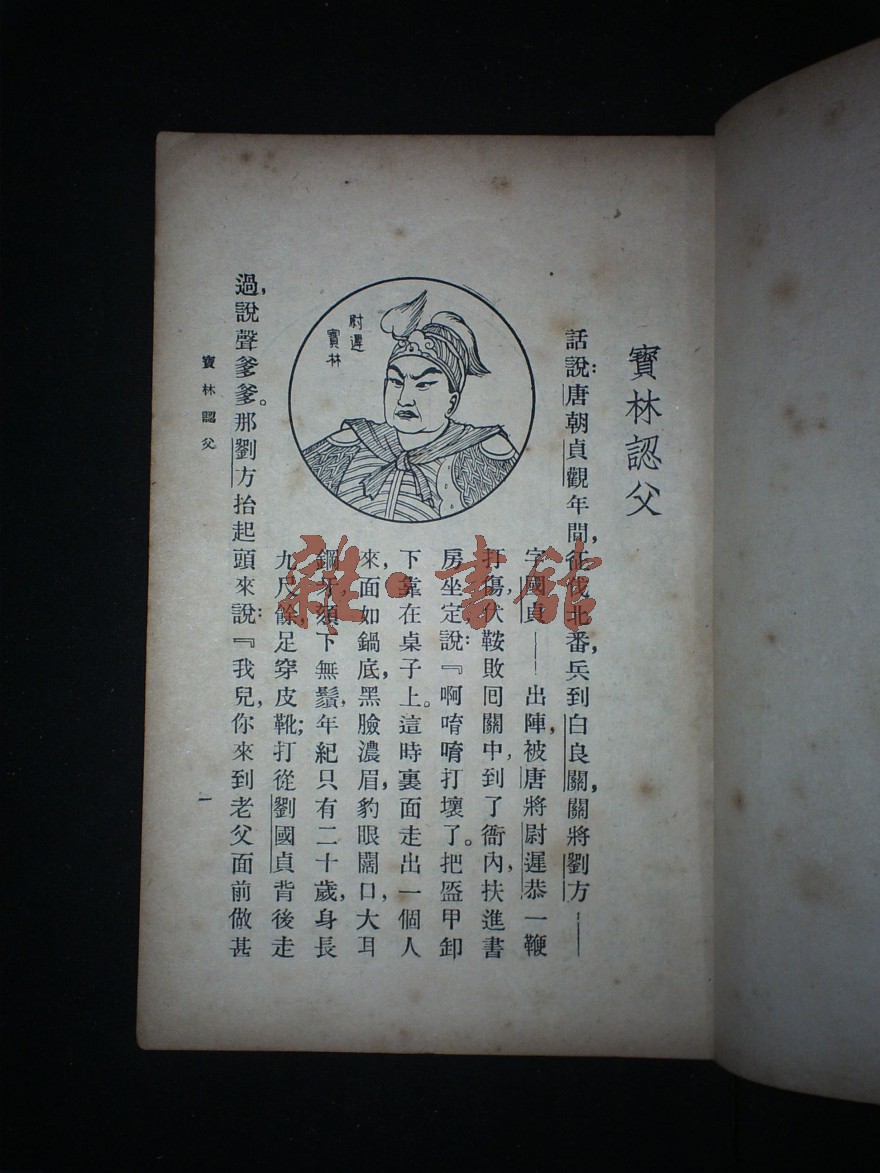 寶林認父
話說：唐朝貞觀年間，征伐北番，兵到白良關，關將劉方——
字國貞——出陣，被唐將尉遲恭一鞭
打傷，伏鞍敗回關中，到了衙內，扶進書
房坐定，說：『啊唷唷打壞了。把盔甲卸
下靠在桌子上。這時裏面走出一個人
來，面如鍋底，黑臉濃眉，豹眼闊口，大耳
鋼牙，頦下無鬚，年紀只有二十歲，身長
九尺餘，足穿皮靴；打從劉國貞背後走
過，說聲爹爹。那劉方抬起頭來說：『我兒，你來到老父面前做甚
尉遲
寶林
寶林認父
一
雜·書館